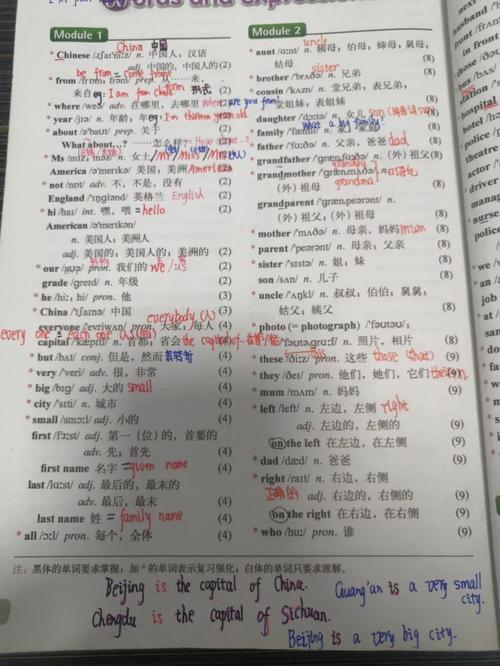 Words and expressions
Module 1
China 中国
* Chinese /tʃaɪˈniːz/ n. 中国人,汉语
adj. 中国的,中国人的 (2)
be from = come from
* from /frɒm, frəm/ prep. 从……来,
来自 eg: I am from China (2)
* where /weə/ adv. 在哪里,去哪里 where are you from (2)
* year /jɪə/ n. 年龄;年 eg: I'm thirteen years old. (2)
* about /əˈbaʊt/ prep. 关于
What about…? ……怎么样? How about…? (2)
* Ms /mɪz, məz/ n. 女士 (2)
America /əˈmerɪkə/ 美国;美洲 (2)
* not /nɒt/ adv. 不,不是,没有 (2)
England /ˈɪŋɡlənd/ 英格兰 English (2)
* hi /haɪ/ int. 嘿,喂 =hello (2)
American /əˈmerɪkən/
n. 美国人;美洲人
adj. 美国的;美国人的;美洲的 (2)
* our /aʊə/ pron. 我们的 we /us (2)
grade /ɡreɪd/ n. 年级 (2)
* he /hiː; hi/ pron. 他 (3)
* China /ˈtʃaɪnə/ 中国 (3)
everybody
everyone /ˈevriwʌn/ pron. 大家;每人 (4)
every one = each one
capital /ˈkæpɪtl/ n. 首都;省会 the capital of (4)
* but /bʌt/ conj. 但是,然而 表转折 (4)
* very /ˈveri/ adv. 很,非常 (4)
* big /bɪɡ/ adj. 大的 small (4)
* city /ˈsɪti/ n. 城市 (4)
* small /smɔːl/ adj. 小的 (4)
first /fɜːst/ adj. 第一(位)的,首要的
adv. 先;首先 (4)
first name 名字 =given name (4)
last /lɑːst/ adj. 最后的,最末的
adv. 最后,最末 (4)
last name 姓 = family name (4)
* all /ɔːl/ pron. 每个,全体 (4)
Module 2
uncle
* aunt /ɑːnt/ n. 姨母,伯母,婶母,舅母,
姑母 (8)
sister
* brother /ˈbrʌðə/ n. 兄弟 (8)
* cousin /ˈkʌzn/ n. 堂兄弟,表兄弟,
堂姐妹,表姐妹 (8)
* daughter /ˈdɔːtə/ n. 女儿 son (8)
What a big family!
* family /ˈfæmli/ n. 家,家庭 (8)
* father /ˈfɑːðə/ n. 父亲,爸爸 dad (8)
grandfather /ˈɡrænˌfɑːðə/ n. (外) 祖父 (8)
grandpa
* grandmother /ˈɡrænˌmʌðə/ n.
(外) 祖母 grandma (8)
grandparent /ˈɡrænˌpeərənt/ n.
(外) 祖父,(外) 祖母 (8)
* mother /ˈmʌðə/ n. 母亲,妈妈 mum (8)
* parent /ˈpeərənt/ n. 母亲;父亲 (8)
* sister /ˈsɪstə/ n. 姐;妹 (8)
* son /sʌn/ n. 儿子 (8)
* uncle /ˈʌŋkl/ n. 叔叔,伯伯,舅舅,
姑父;姨父 (8)
* photo (= photograph) /ˈfəʊtəʊ/;
/ˈfəʊtəɡrɑːf/ n. 照片,相片 (8)
* these /ðiːz/ pron. 这些 those (that) (9)
* they /ðeɪ/ pron. 他们,她们,它们 (9)
* mum /mʌm/ n. 妈妈 (9)
* left /left/ n. 左边,左侧 right
adj. 左边的,左侧的 (9)
on the left 在左边,在左侧 (9)
* dad /dæd/ n. 爸爸 (9)
* right /raɪt/ n. 右边,右侧
正确的 adj. 右边的,右侧的 (9)
on the right 在右边,在右侧 (9)
* who /huː/ pron. 谁 (9)
注:黑体的单词要求掌握;加 * 的单词表示复习强化;白体的单词只要求理解。
Beijing is the capital of China.
Chengdu is the capital of Sichuan.
Guang'an is a very small
city.
Beijing is a very big city.